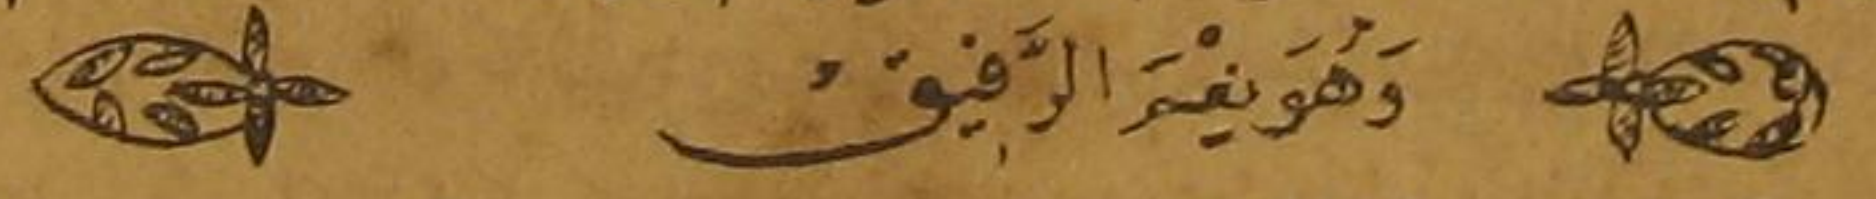 وَهُوَ نِعْمَ الرَّفِيقُ